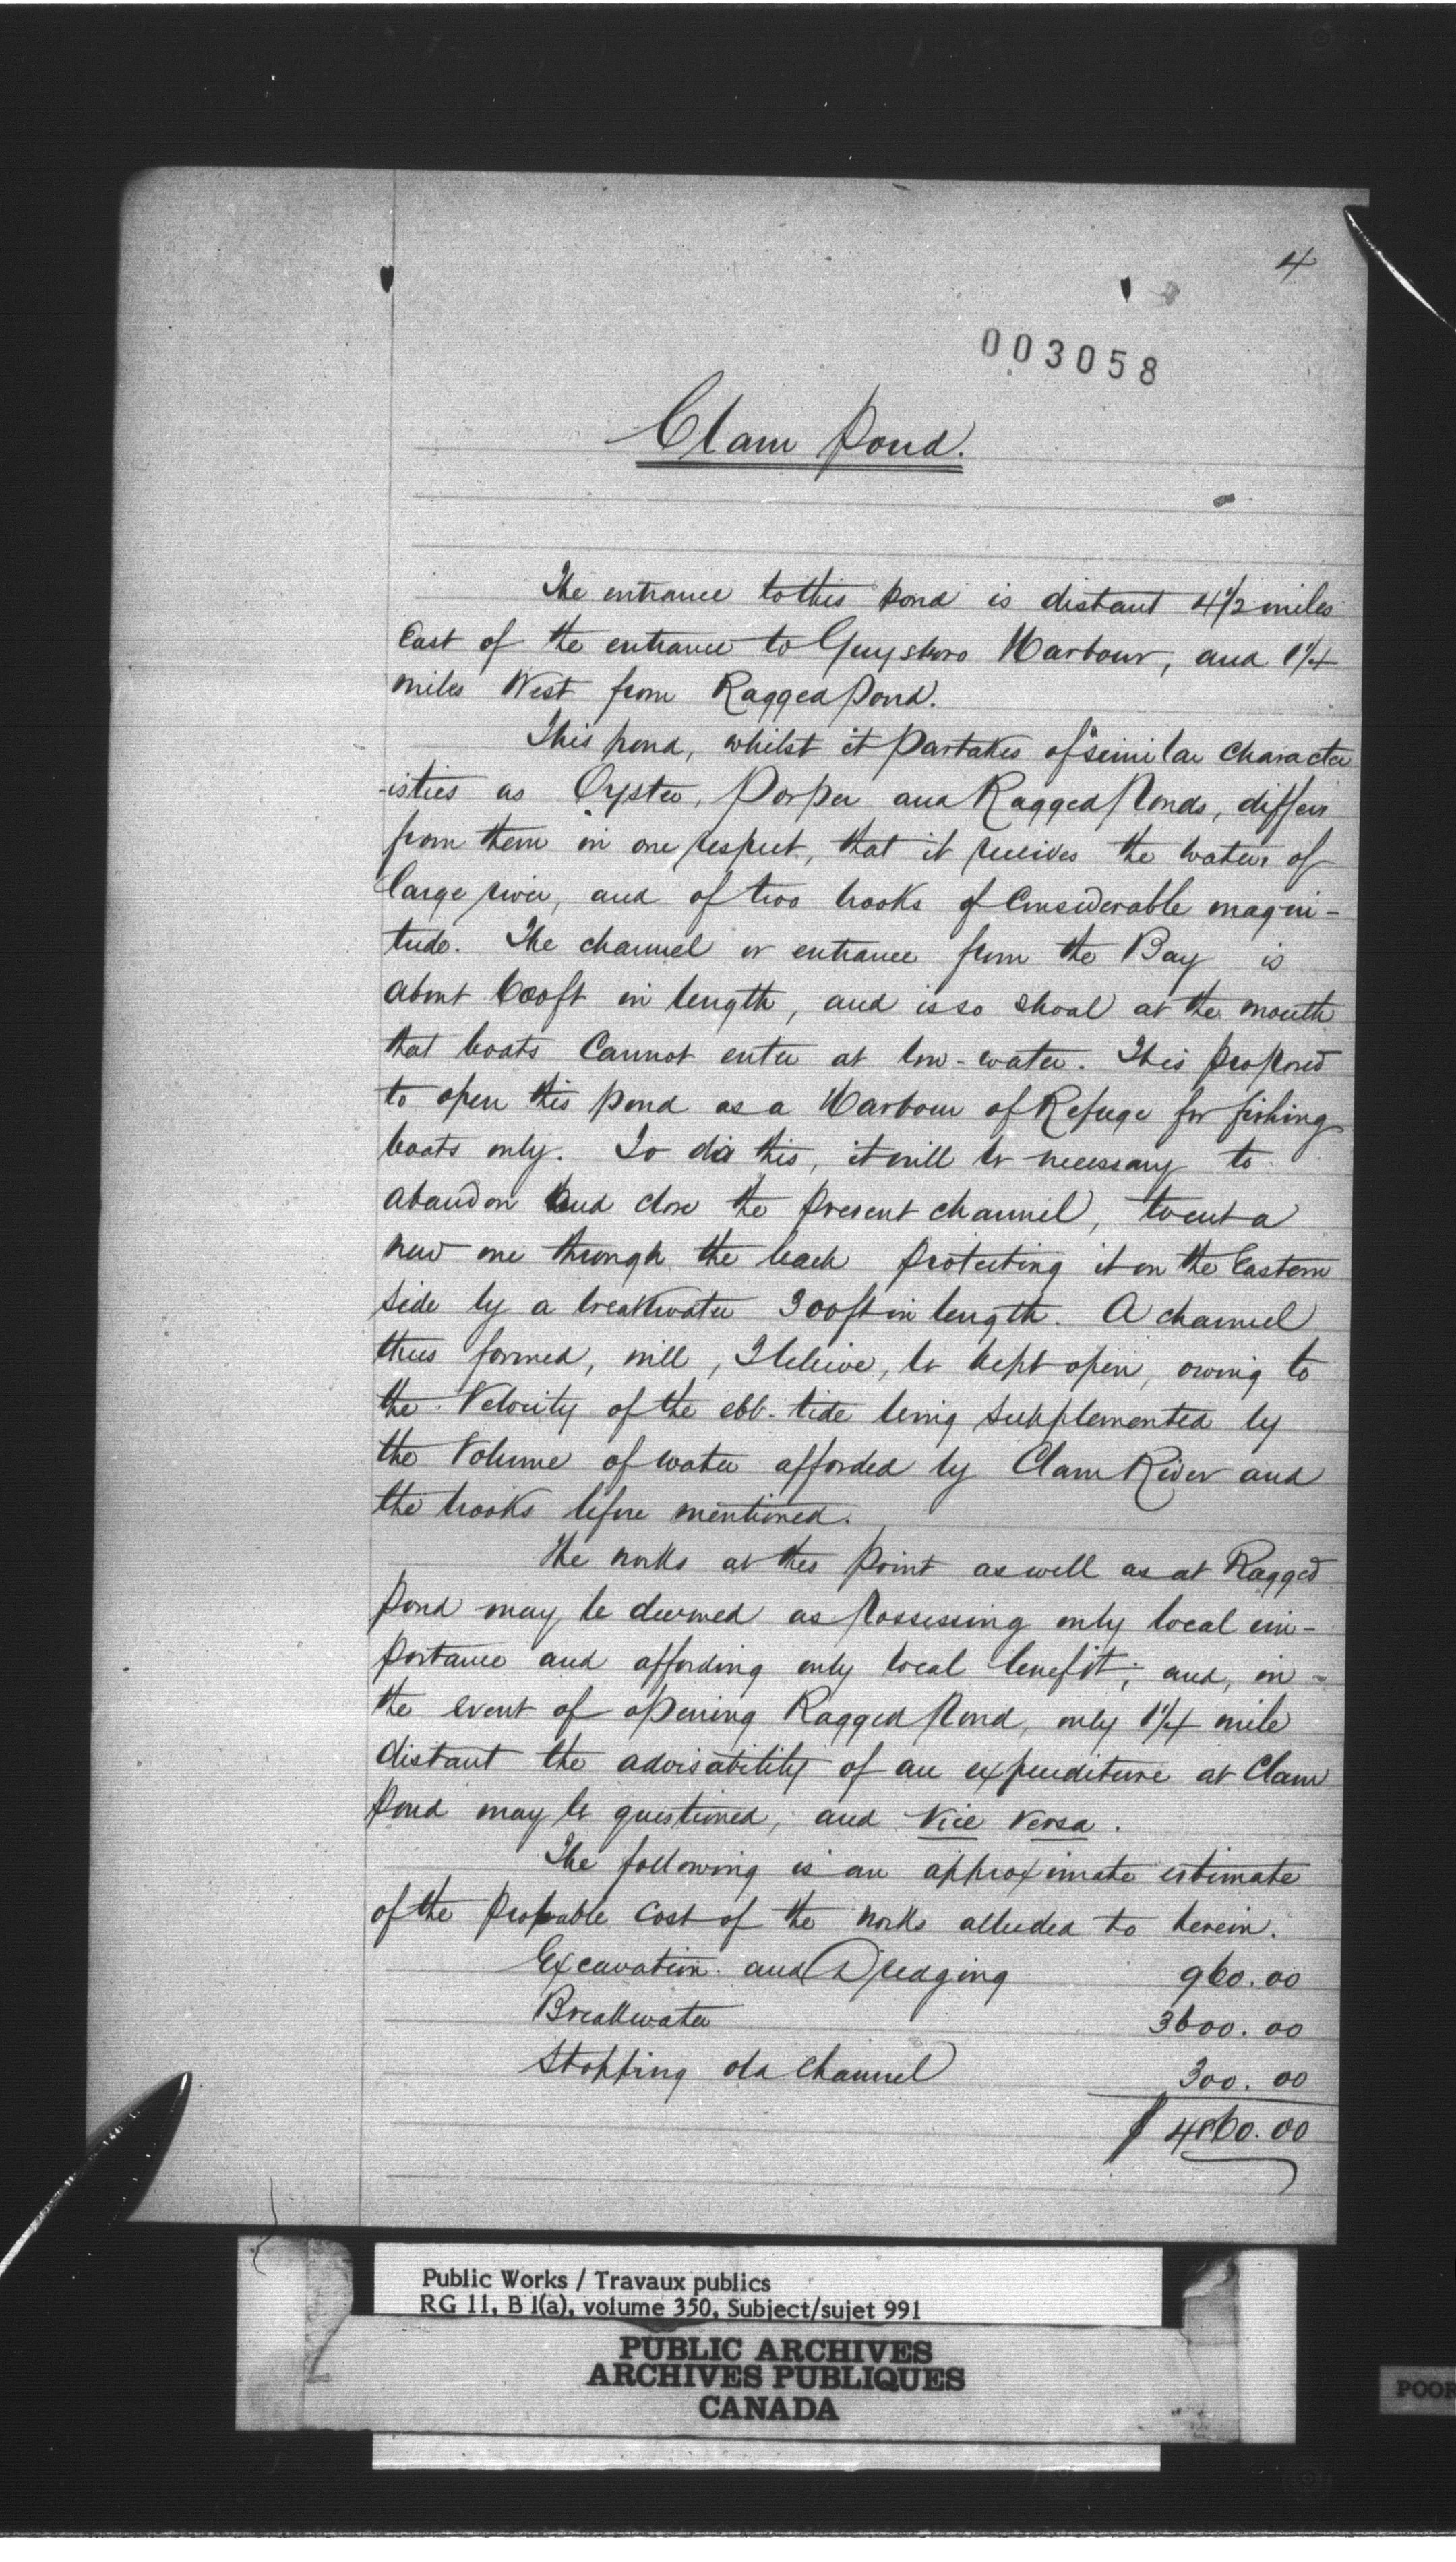 4
003058
Clam Pond.
The entrance to this pond is distant 4 1/2 miles
East of the entrance to Guysboro Harbour, and 1 1/4
miles West from Ragged Pond.
This pond, whilst it partakes of similar character
-istics as Oyster, Porper and Ragged Ponds, differs
from them in one respect, that it receives the waters of
large river, and of two brooks of Considerable magni-
tude. The channel or entrance from the Bay is
about 600 ft in length, and is so shoal at the mouth
that boats Cannot enter at low-water. This proposed
to open this pond as a Harbour of Refuge for fishing
boats only. To do this, it will be necessary to
abandon and close the present channel, to cut a
new one through the beach protecting it on the Eastern
side by a breakwater 300 ft in length. A channel
thus formed, will, I believe, be kept open, owing to
the Velocity of the ebb-tide being supplemented by
the Volume of water afforded by Clam River and
the brooks before mentioned.
The works at this point as well as at Ragged
Pond may be deemed as possessing only local im-
portance and affording only local benefit; and, in
the event of opening Ragged Pond, only 1 1/4 mile
distant the advisability of an expenditure at Clam
Pond may be questioned, and Vice Versa.
The following is an approximate estimate
of the probable cost of the works alluded to herein.
Excavation and Dredging 960.00
Breakwater 3600.00
Stopping old Channel 300.00
$ 4860.00
Public Works / Travaux publics
RG 11, B 1(a), volume 350, Subject/sujet 991
PUBLIC ARCHIVES
ARCHIVES PUBLIQUES
CANADA
POOR